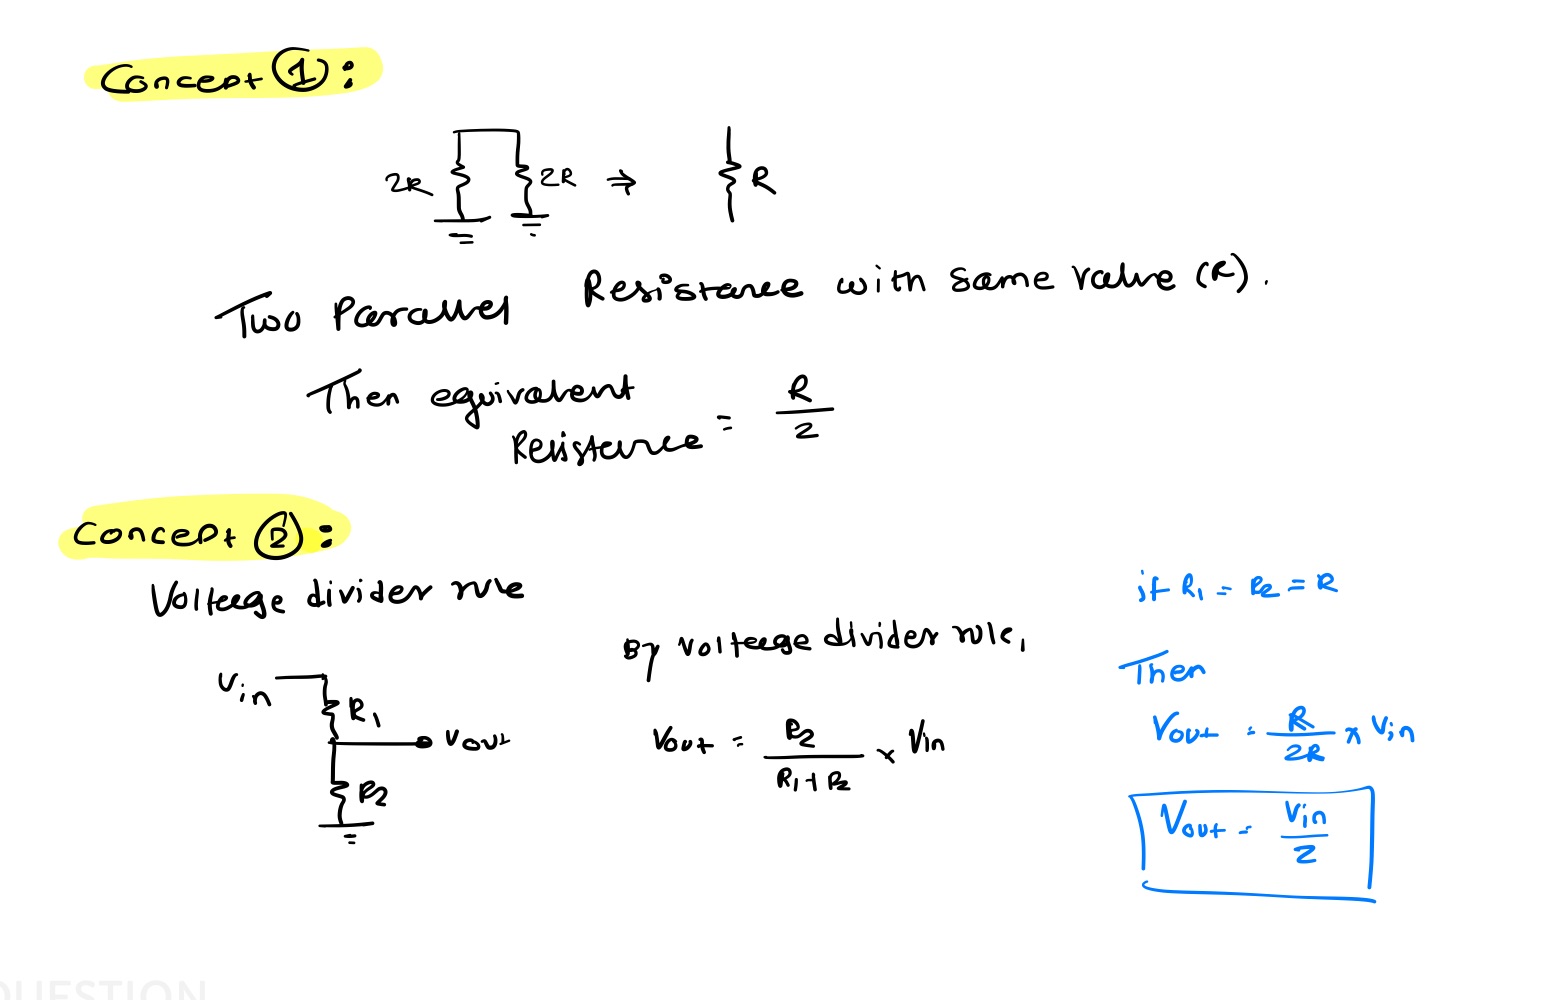 Concept ①:
2R 2R ⇒ R
Two Parallel Resistance with same value (R).
Then equivalent
Resistance = R/2
Concept ②:
Voltage divider rule
Vin
R1
Vout
R2
By voltage divider rule,
Vout = R2/(R1+R2) × Vin
if R1 = R2 = R
Then
Vout = R/2R × Vin
Vout = Vin/2
QUESTION